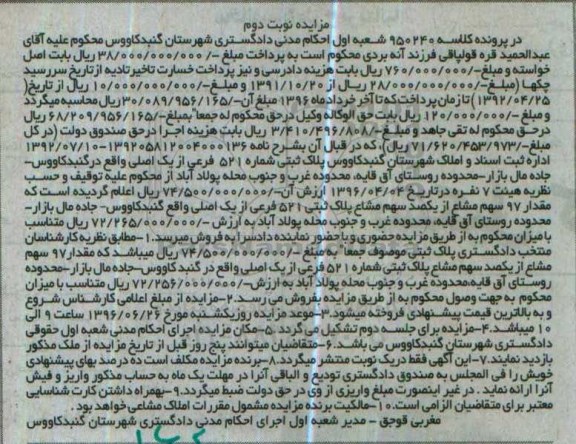 مزایده نوبت دوم
در پرونده کلاسه ۹۵۰۲۴۰ شعبه اول احکام مدنی دادگستری شهرستان گنبدکاووس محکوم علیه آقای
عبدالحمید قره قولپاقی فرزند آنه بردی محکوم است به پرداخت مبلغ -/۳۸/۰۰۰/۰۰۰/۰۰۰ ریال بابت اصل
خواسته و مبلغ-/۷۶۰/۰۰۰/۰۰۰ ریال بابت هزینه دادرسی و نیز پرداخت خسارت تاخیر تادیه از تاریخ سررسید
چکها (مبلغ-/۲۸/۰۰۰/۰۰۰/۰۰۰ ریال از ۱۳۹۱/۱۰/۲۰ و مبلغ-/۱۰/۰۰۰/۰۰۰/۰۰۰ ریال از تاریخ(
۱۳۹۲/۰۴/۲۵) تا زمان پرداخت که تا آخر خرداد ماه ۱۳۹۶ مبلغ آن-/۳۰/۰۸۹/۹۵۶/۱۶۵ ریال محاسبه میگردد
و مبلغ -/۱۲۰/۰۰۰/۰۰۰ ریال بابت حق الوکاله وکیل در حق محکوم له جمعا"بمبلغ-/۶۸/۲۰۹/۹۵۶/۱۶۵ ریال
در حق محکوم له تقی جاهد و مبلغ-/۳/۴۱۰/۴۹۶/۸۰۸ ریال بابت هزینه اجرا در حق صندوق دولت (در کل
مبلغ-/۷۱/۶۲۰/۴۵۳/۹۷۳ ریال)، که در قبال آن بشرح نامه ۱۳۹۲۰۵۸۱۲۰۰۴۰۰۰۱۳۶-۱۳۹۲/۰۷/۱۰
اداره ثبت اسناد و املاک شهرستان گنبدکاووس پلاک ثبتی شماره ۵۲۱ فرعی از یک اصلی واقع در گنبدکاووس-
جاده مال بازار-محدوده روستای آق قایه، محدوده غرب و جنوب محله پولاد آباد از محکوم علیه توقیف و حسب
نظریه هیئت ۷ نفره در تاریخ ۱۳۹۶/۰۴/۰۴ ارزش آن-/۷۴/۵۰۰/۰۰۰/۰۰۰ ریال اعلام گردیده است که
مقدار ۹۷ سهم مشاع از یکصد سهم مشاع پلاک ثبتی ۵۲۱ فرعی از یک اصلی واقع گنبدکاووس- جاده مال بازار-
محدوده روستای آق قایه، محدوده غرب و جنوب محله پولاد آباد به ارزش -/۷۲/۲۶۵/۰۰۰/۰۰۰ ریال متناسب
با میزان محکوم به از طریق مزایده حضوری و با حضور نماینده دادسرا به فروش میرسد.۱-مطابق نظریه کارشناسان
منتخب دادگستری پلاک ثبتی موصوف جمعا" به مبلغ -/۷۴/۵۰۰/۰۰۰/۰۰۰ ریال میباشد که مقدار ۹۷ سهم
مشاع از یکصد سهم مشاع پلاک ثبتی شماره ۵۲۱ فرعی از یک اصلی واقع در گنبد کاووس-جاده مال بازار-محدوده
روستای آق قایه،محدوده غرب و جنوب محله پولاد آباد به ارزش-/۷۲/۲۵۶/۰۰۰/۰۰۰ ریال متناسب با میزان
محکوم به جهت وصول محکوم به از طریق مزایده بفروش می رسد.۲-مزایده از مبلغ اعلامی کارشناس شروع
و به بالاترین قیمت پیشنهادی فروخته میشود.۳-موعد مزایده روز یکشنبه مورخ ۱۳۹۶/۰۶/۲۶ ساعت ۹ الی
۱۰ میباشد.۴-مزایده برای جلسه دوم تشکیل می گردد .۵-مکان مزایده اجرای احکام مدنی شعبه اول حقوقی
دادگستری شهرستان گنبدکاووس می باشد.۶-متقاضیان میتوانند پنج روز قبل از تاریخ مزایده از ملک مذکور
بازدید نمایند.۷-این آگهی فقط در یک نوبت منتشر میگردد.۸-برنده مزایده مکلف است ده درصد بهای پیشنهادی
خویش را فی المجلس به صندوق دادگستری تودیع و الباقی آنرا در مهلت یک ماه به حساب مذکور واریز و فیش
آنرا ارائه نماید . در غیر اینصورت مبلغ واریزی از وی در حق دولت ضبط میگردد.۹-بهمراه داشتن کارت شناسایی
معتبر برای متقاضیان الزامی است.۱۰-مالکیت برنده مزایده مشمول مقررات املاک مشاعی خواهد بود .
مغربی قوجق - مدیر شعبه اول اجرای احکام مدنی دادگستری شهرستان گنبدکاووس